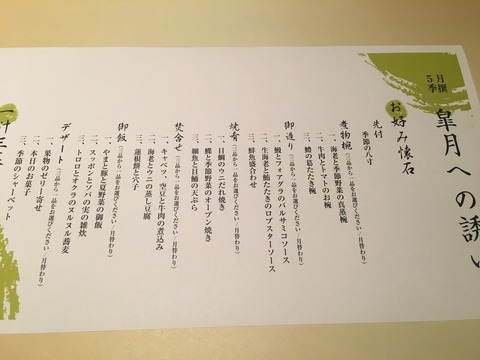 5月
季撰
皐月への誘い
お好み懐石
先付
季節の八寸
煮物椀(三品から一品をお選びください/月替わり)
一、海老と季節野菜の真蒸椀
二、牛肉とトマトのお椀
三、鱧の葛たたき椀
御造り(三品から一品をお選びください/月替わり)
一、鮪とフォアグラのバルサミコソース
二、生海老と鮪たたきのロブスターソース
三、鮮魚盛合わせ
焼肴(三品から一品をお選びください/月替わり)
一、目鯛のウニだれ焼き
二、鰈と季節野菜のオーブン焼き
三、細魚と目鯒の天ぷら
焚合わせ(三品から一品をお選びください/月替わり)
一、キャベツ、空豆と牛肉の煮込み
二、海老とウニの蒸し豆腐
三、蓮根餅と穴子
御飯(三品から一品をお選びください/月替わり)
一、やまと豚と夏野菜の御飯
二、スッポンとソバの実の雑炊
三、トロロとオクラのヌルヌル蕎麦
デザート(三品から一品をお選びください/月替わり)
一、果物のゼリー寄せ
二、本日のお菓子
三、季節のシャーベット
一汁三